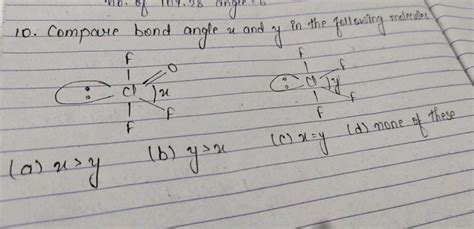 no. of 109.28 angle is
10. Compare bond angle x and y in the following molecules
F F
O
: Cl ) x : Cl ) y F
F F
F F
(a) x > y (b) y > x (c) x = y (d) none of these